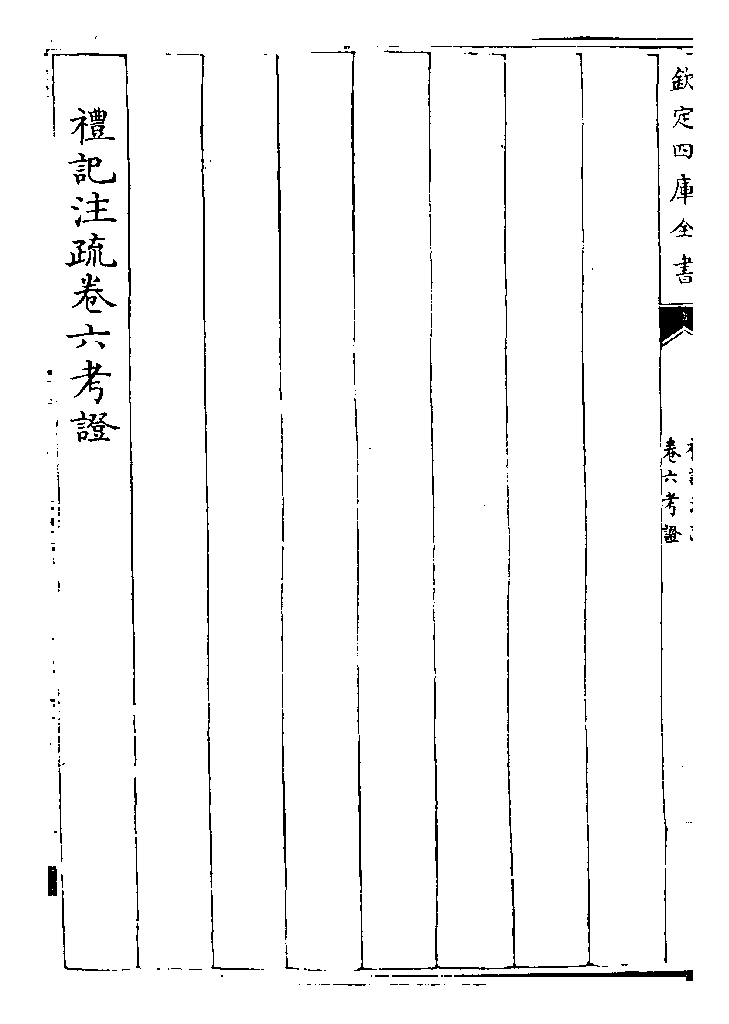 欽定四庫全書
卷六考證
禮記注疏卷六考證